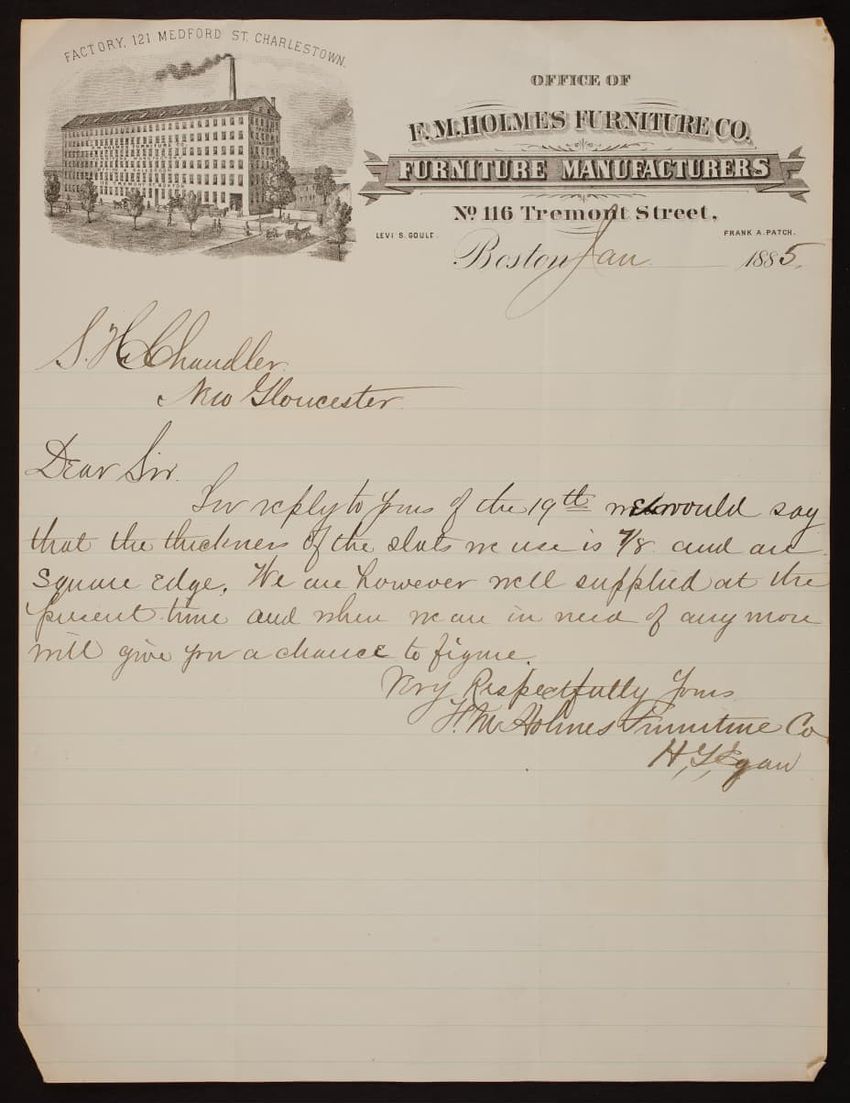 FACTORY, 121 MEDFORD ST. CHARLESTOWN.
OFFICE OF
F. M. HOLMES FURNITURE CO.
FURNITURE MANUFACTURERS
No 116 Tremont Street,
LEVI S. GOULD. FRANK A. PATCH.
Boston Jan 1885.
S. H. Chandler.
New Gloucester.
Dear Sir.
In reply to yours of the 19th we would say
that the thickness of the slats we use is 7/8 and are
Square Edge. We are however well supplied at the
present time and when we are in need of any more
will give you a chance to figure.
Very Respectfully Yours
F. M. Holmes Furniture Co
H. G.